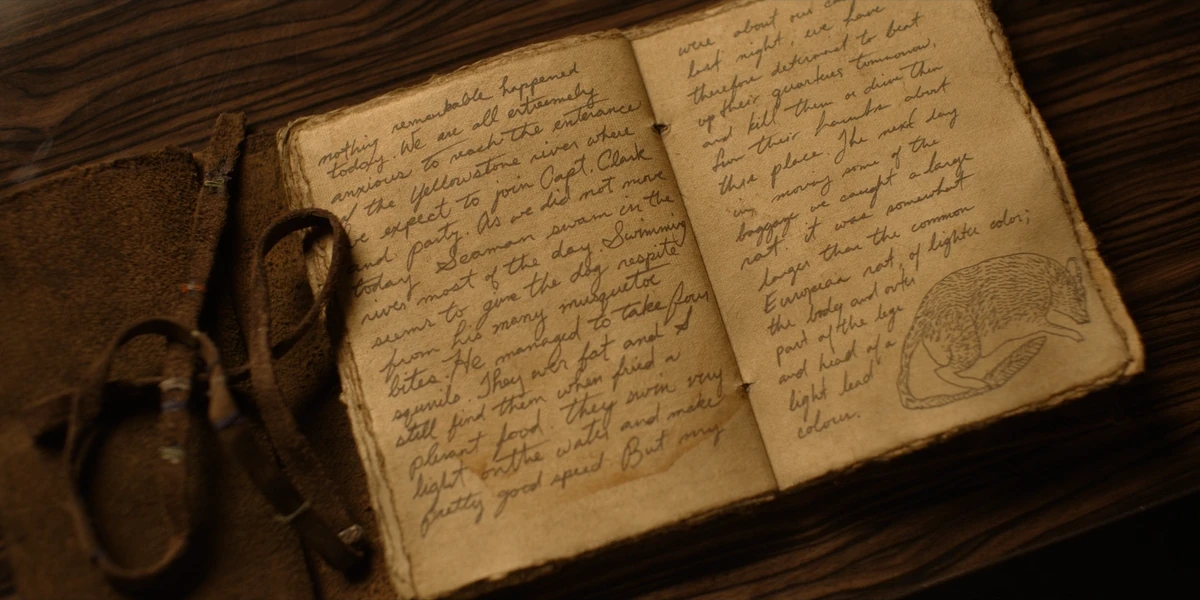 nothing remarkable happened
today. We are all extremely
anxious to reach the enterance
of the Yellowstone river where
we expect to join Capt. Clark
and party. As we did not move
today Seaman swam in the
river most of the day Swimming
seems to give the dog respite
from his many musquetoe
bites. He managed to take four
squirels. They wer fat and I
still find them when fried a
plesent food. they swim very
light on the water and make
pretty good speed. But my
were about our
last night, we have
therefore determined to beat
up their quarters tommorow,
and kill them or drive them
fun their haunts about
this place. The next day
in moving some of the
baggage we caught a large
rat. it was somewhat
larger than the common
European rat, of lighter color;
the body and outer
part of the legs
and head of a
light lead
colour.